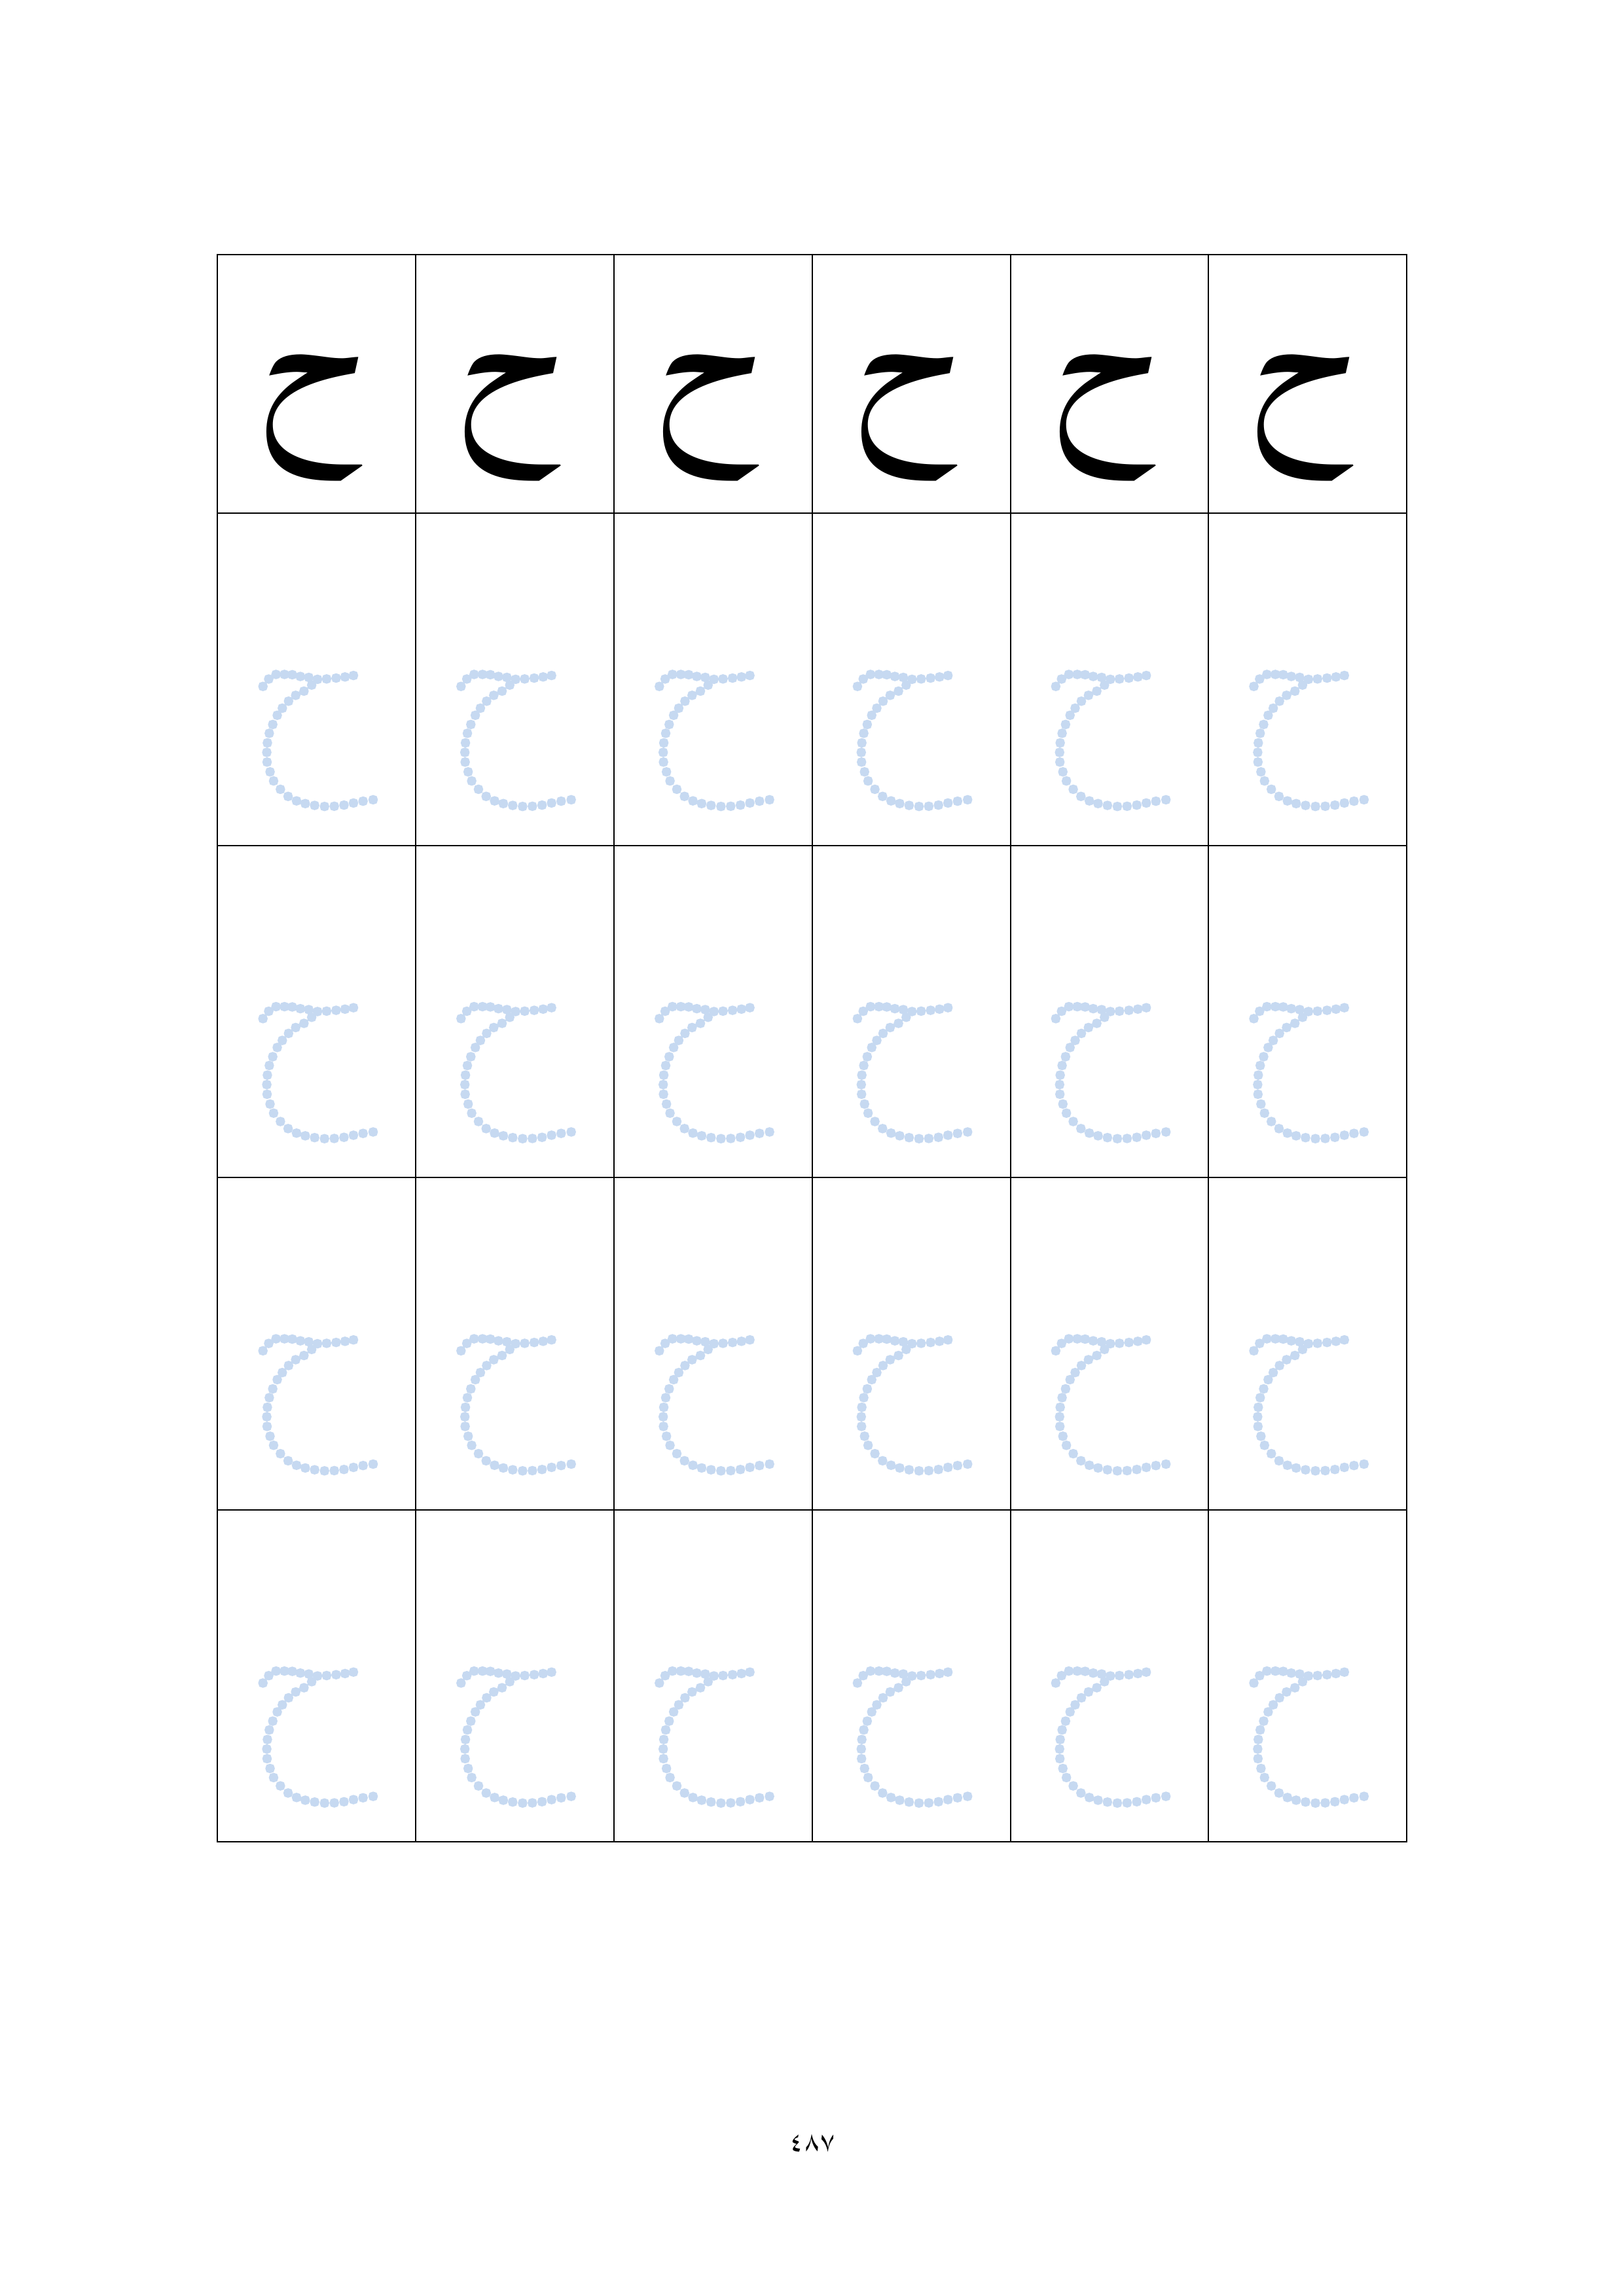 ح ح ح ح ح ح
ح ح ح ح ح ح
ح ح ح ح ح ح
ح ح ح ح ح ح
ح ح ح ح ح ح
٤٨٧